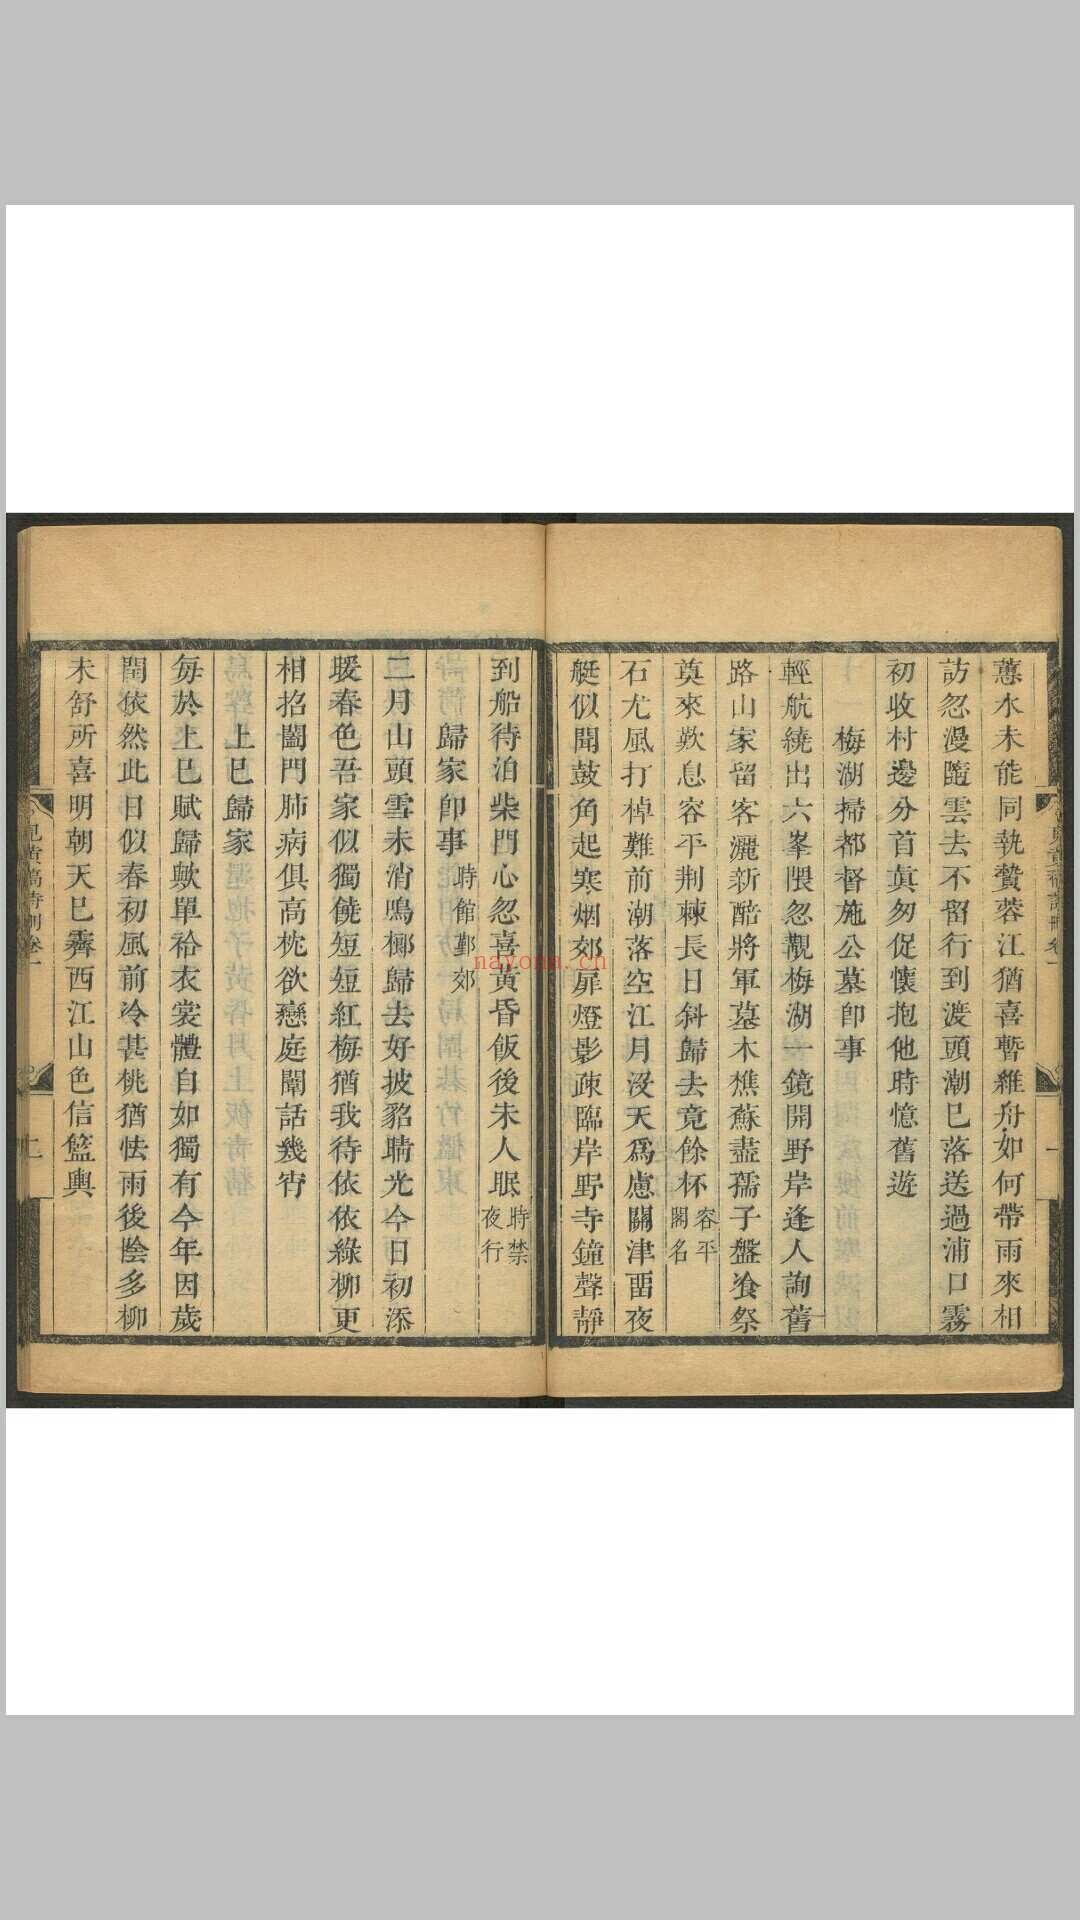 蕙水未能同執贄蓉江猶喜暫維舟如何帶雨來相
訪忽漫隨雲去不留行到渡頭潮已落送過浦口霧
初收村邊分首真匆促懷抱他時憶舊遊
梅湖掃都督施公墓即事
輕航繞出六峯隈忽覩梅湖一鏡開野岸逢人詢舊
路山家留客灑新醅將軍墓木樵蘇盡孺子盤飡祭
奠來歎息容平荆棘長日斜歸去竟餘杯容平閣名
石尤風打棹難前潮落空江月没天爲慮關津畱夜
艇似聞鼓角起寒烟郊扉燈影疎臨岸野寺鐘聲靜
到船待泊柴門心忽喜黃昏飯後未人眠時禁夜行
歸家即事時館鄞郊
二月山頭雪未消鳴榔歸去好披貂晴光今日初添
暖春色吾家似獨饒短短紅梅猶我待依依綠柳更
相招闔門肺病俱高枕欲戀庭闈話幾宵
上巳歸家
每於上巳賦歸歟單袷衣裳體自如獨有今年因歲
閏依然此日似春初風前冷甚桃猶怯雨後陰多柳
未舒所喜明朝天已霽西江山色信籃輿
nayona.cn